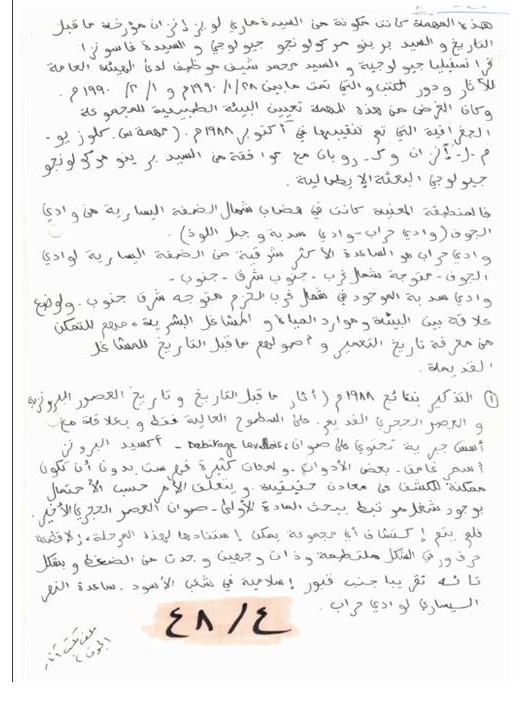 هذه المهمة كانت مكونة من السيدة ماري لويز إنزان مؤرخة ما قبل
التاريخ و السيد برينو مركولونجو جيولوجي و السيدة
جيولوجية و السيد محمد شيف موظف لدى الهيئة العامة
للآثار ودور الكتب والتي تمت مابين ١٩٩٠/١/٢٨م و ١٩٩٠/٢/١م .
وكان الغرض من هذه المهمة تعيين البيئة الطبيعية للمجموعة
الجغرافية التي تم تنقيبها في أكتوبر ١٩٨٨م . (مهمة س. كلوزيو -
م-ل- إنزان و ك- روبان مع موافقة من السيد برينو مركولونجو
جيولوجي البعثة الإيطالية .
فالمنطقة المعنية كانت في هضاب شمال الضفة اليسارية من وادي
الجوف (وادي حراب - وادي سدبة و جبل اللوذ) .
وادي حراب هو الساعدة الأكثر شرقية من الضفة اليسارية لوادي
الجوف - متوجة شمال غرب - جنوب شرق - جنوب -
وادي سدبة الموجود في شمال غرب الحزم متوجه شرق جنوب . ولوضع
علاقة بين البيئة وموارد المياه و المشاغل البشرية ، مهم للتمكن
من معرفة تاريخ التعمير و أصولهم ماقبل التاريخ للمشاغل
القديمة .
① التذكير بنتائج ١٩٨٨م (آثار ماقبل التاريخ و تاريخ العصور البرونزية
و العصر الحجري القديم . على السطوح العالية فقط و بعلاقة مع
أسس جيرية تحتوي على صوان ، Debitage levallois - أكسيد البرونز
أسمر غامق - بعض الأدوات . و لمعات كثيرة فهرست بدون أن تكون
ممكنة للكشف عن معادن حقيقية . و يتعلق الأمر حسب الأحتمال
بوجود شغل مرتبط ببحث المادة الأولى - صوان العصر الحجري الأخير .
فلم يتم إكتشاف أي مجموعة يمكن إستنادها لهذه المرحلة ،
في الشكل ملتطمة وذات وجهين وجدت من الضغط و بشكل
تائه تقريبا جنب قبور إسلامية في شعب الأسود . ساعدة النهر
اليساري لوادي حراب .
٤٨/٤